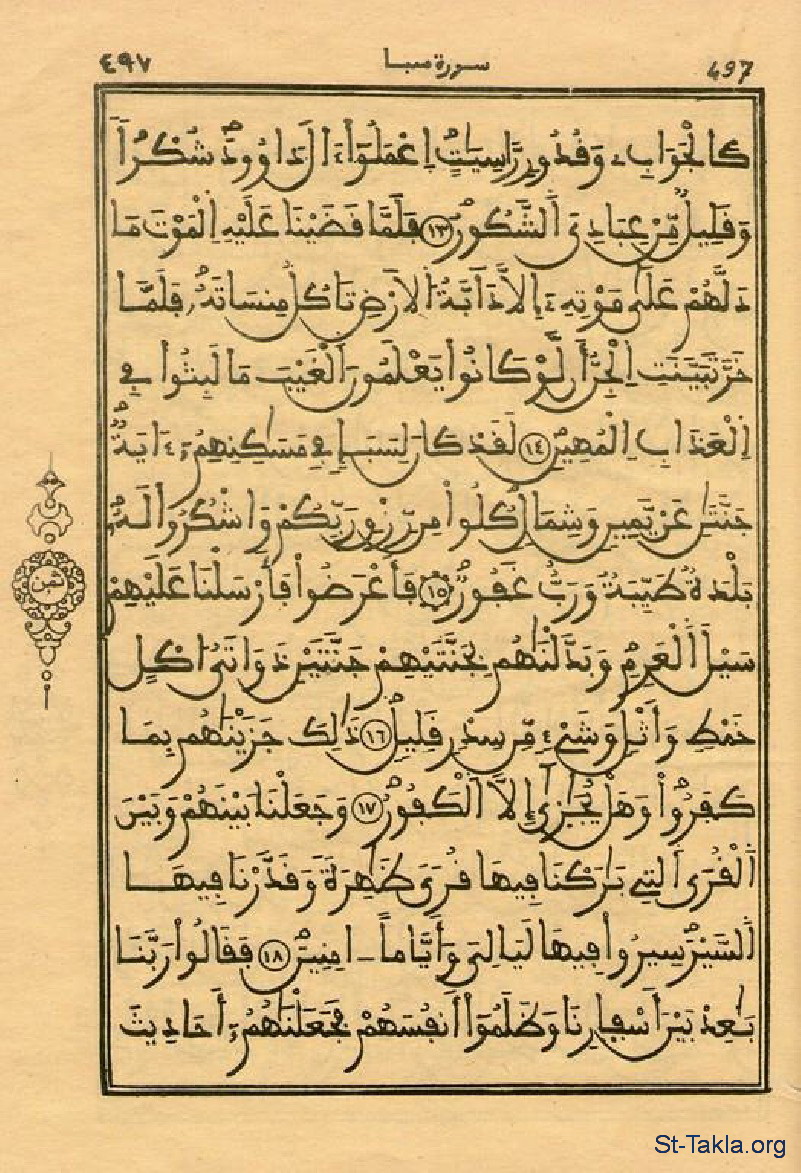 497 سورة سبا ٤٩٧
كَالْجَوَابِۦ وَقُدُورٍ رَّاسِيَٰتٍ اِعْمَلُوٓاْ ءَالَ دَاوُۥدَ شُكْراٗ
وَقَلِيلٞ مِّنْ عِبَادِيَ اَ۬لشَّكُورُ ١٣ فَلَمَّا قَضَيْنَا عَلَيْهِ اِ۬لْمَوْتَ مَا
دَلَّهُمْ عَلَىٰ مَوْتِهِۦٓ إِلَّا دَآبَّةُ اُ۬لَارْضِ تَاكُلُ مِنسَاتَهُۥ فَلَمَّا
خَرَّ تَبَيَّنَتِ اِ۬لْجِنُّ أَن لَّوْ كَانُواْ يَعْلَمُونَ اَ۬لْغَيْبَ مَا لَبِثُواْ فِي
اِ۬لْعَذَابِ اِ۬لْمُهِينِ ١٤ لَقَدْ كَانَ لِسَبَإٖ فِي مَسَٰكِنِهِمُۥٓ ءَايَةٞ
جَنَّتَٰنِ عَنْ يَّمِينٖ وَشِمَالٖ كُلُواْ مِن رِّزْقِ رَبِّكُمْ وَاشْكُرُواْ لَهُۥ
بَلْدَةٞ طَيِّبَةٞ وَرَبٌّ غَفُورٞ ١٥ فَأَعْرَضُواْ فَأَرْسَلْنَا عَلَيْهِمْ
سَيْلَ اَ۬لْعَرِمِ وَبَدَّلْنَٰهُم بِجَنَّتَيْهِمْ جَنَّتَيْنِ ذَوَاتَيُ اكْلٍ
خَمْطٖ وَأَثْلٖ وَشَيْءٖ مِّن سِدْرٖ قَلِيلٖ ١٦ ذَٰلِكَ جَزَيْنَٰهُم بِمَا
كَفَرُواْ وَهَلْ يُجَٰزَيٰٓ إِلَّا اَ۬لْكَفُورُ ١٧ وَجَعَلْنَا بَيْنَهُمْ وَبَيْنَ
اَ۬لْقُرَى اَ۬لتِي بَٰرَكْنَا فِيهَا قُرىٗ ظَٰهِرَةٗ وَقَدَّرْنَا فِيهَا
اَ۬لسَّيْرَ سِيرُواْ فِيهَا لَيَالِيَ وَأَيَّاماً اٰمِنِينَ ١٨ فَقَالُواْ رَبَّنَا
بَٰعِدْ بَيْنَ أَسْفِارِنَا وَظَلَمُوٓاْ أَنفُسَهُمْ فَجَعَلْنَٰهُمُۥٓ أَحَادِيثَ
ثمن
St-Takla.org